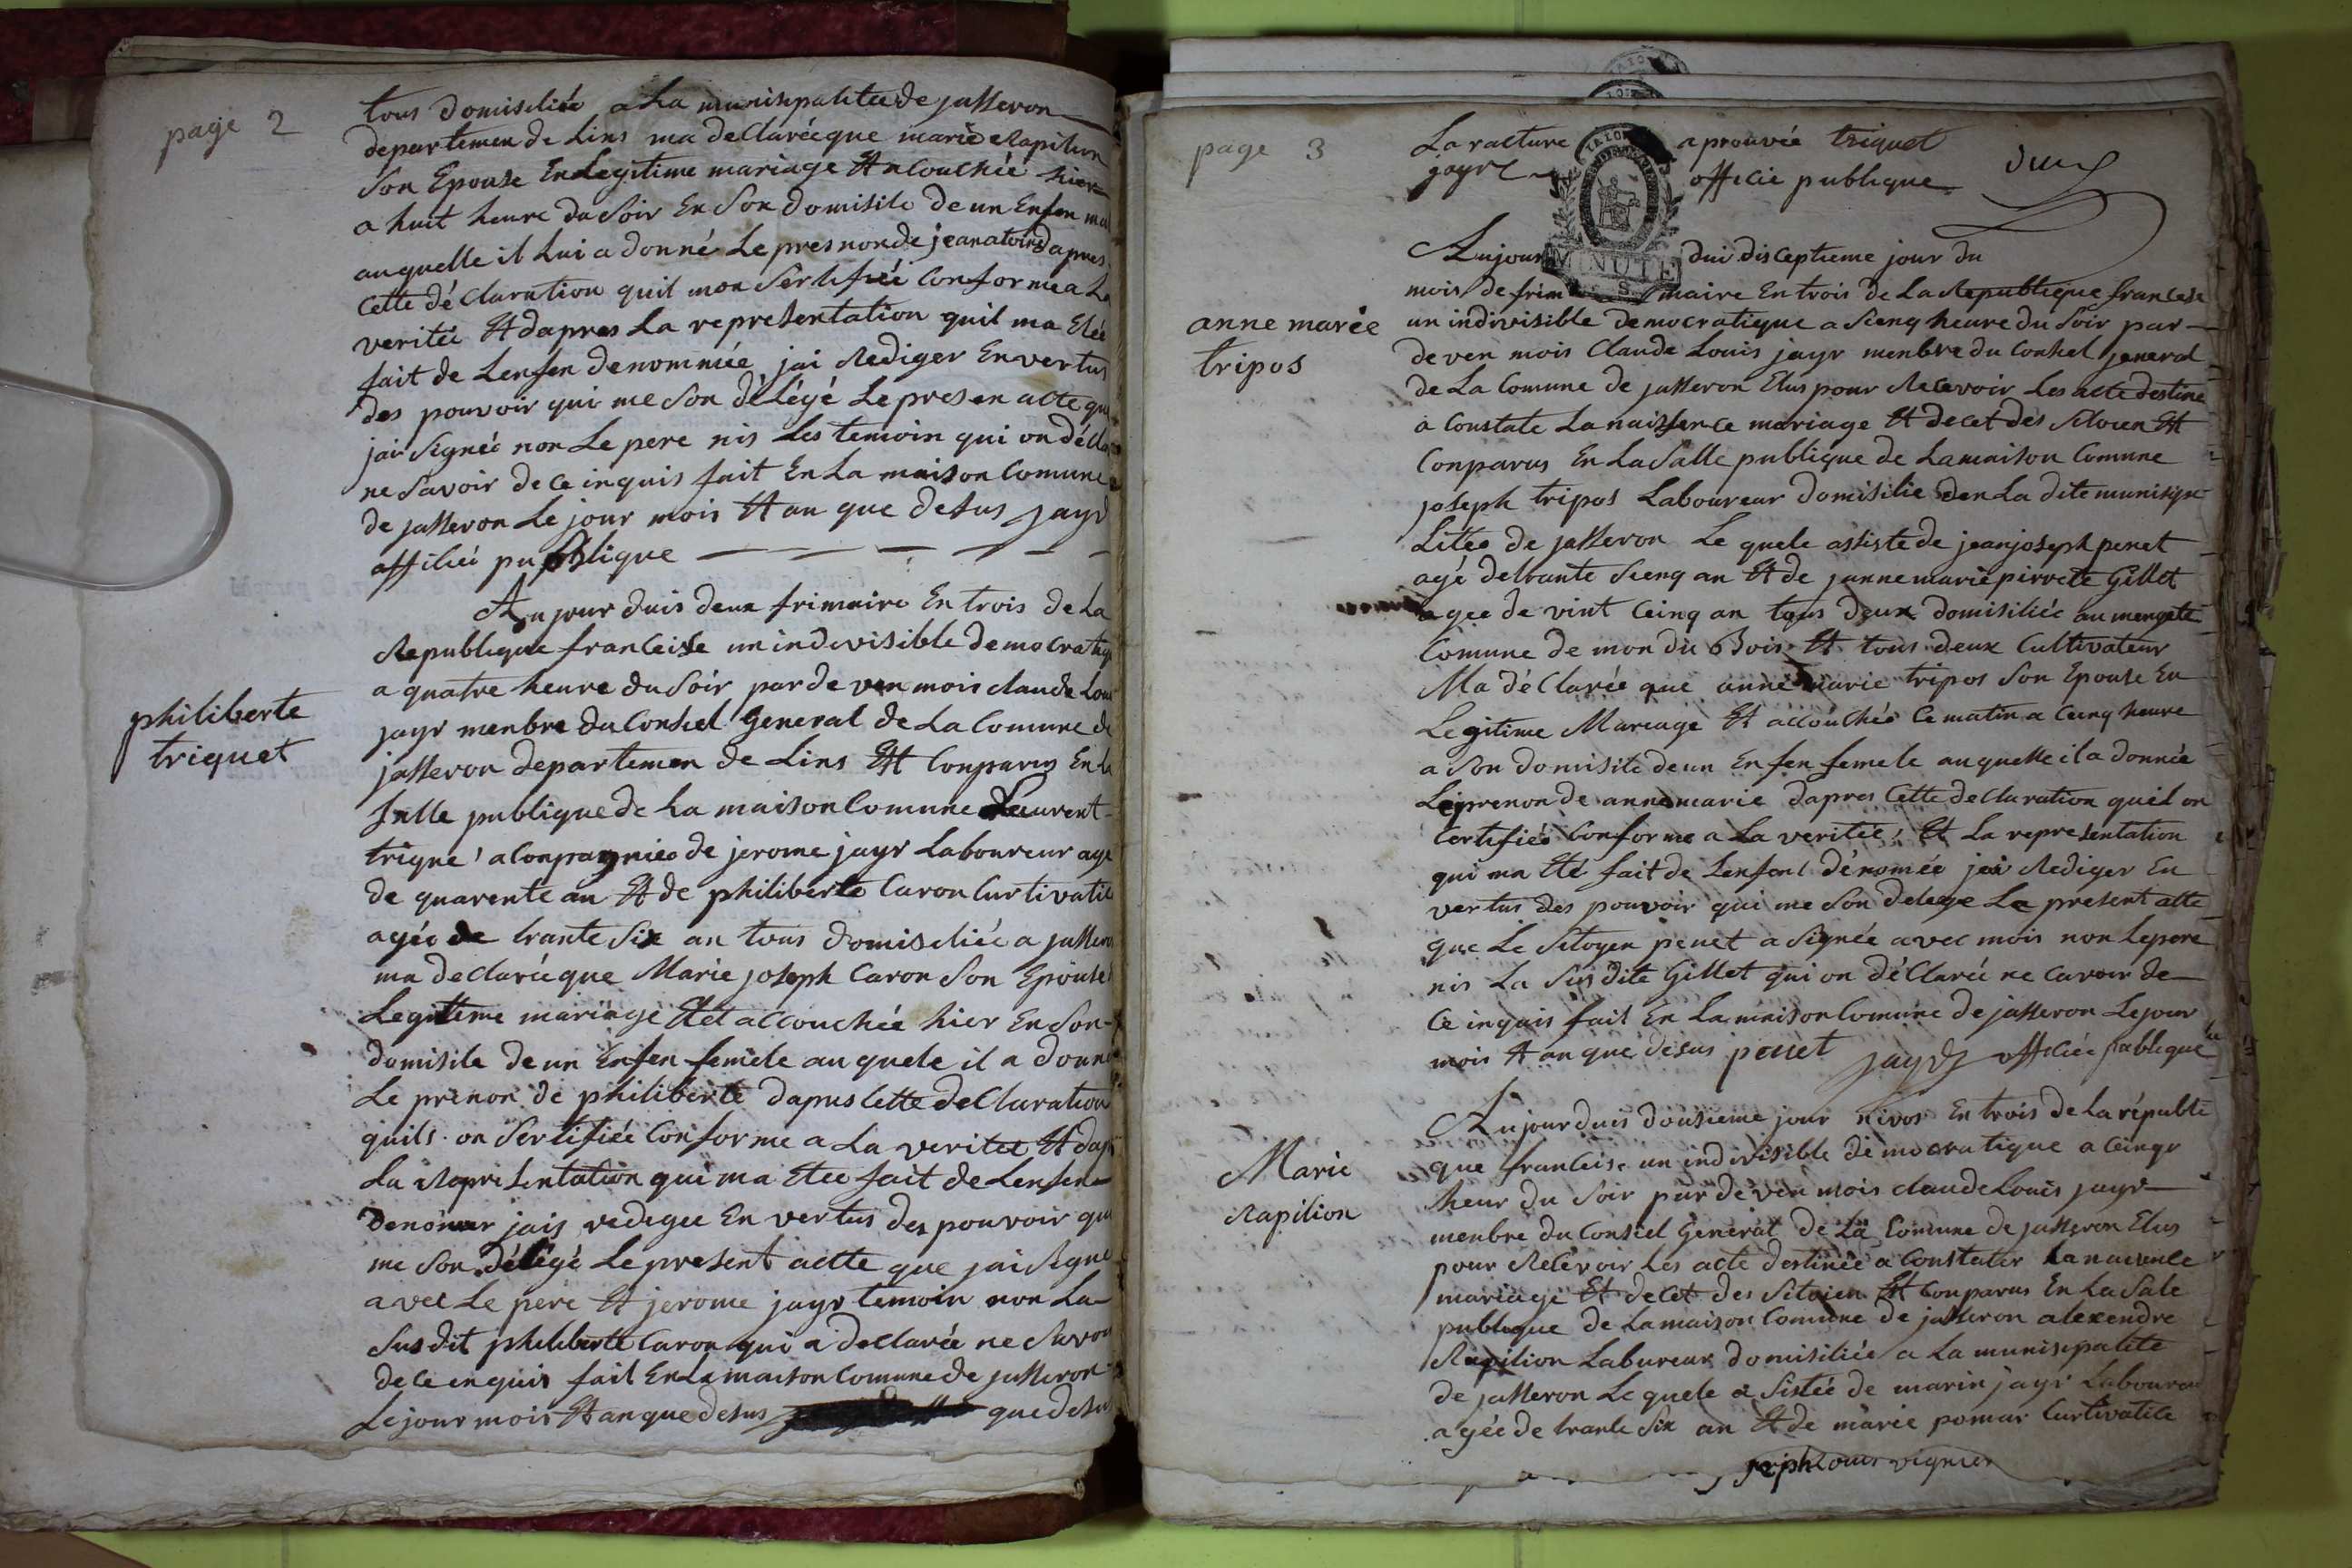 page 2
tous domisiliée a La munisipalitee de jasseron
departemen de Lins ma declarée que marie Rapilion
son Epouse En Legitime mariage Et acouchée hier
a huit heure du soir En son domisile de un Enfen ma
auquelle il Lui a donné Le presnon de jean atoine dapres
cette déclaration quil mon sertifiée conforme a La
veritée Et dapres La representation quil ma Etée
fait de Lenfen denommée jai Rediger En vertus
des pouvoir qui me son délégé Le presen acte que
jai signée non Le pere nis Les temoin qui on décla
ne savoir de ce inquis fait En La maison Comune
de jasseron Le jour mois Et an que desus jayr
officié publique
philiberte
triquet
Au jour duis deux frimaire En trois de La
Republique franceise un indivisible democratiq
a quatre heure du soir par de ven mois claude Loui
jayr menbre du Consiel General de La Comune de
jasseron departemen de Lins Est Conparus En La
salle publique de La maison Comune Laurent
trique aconpagniee de jerome jayr Laboureur age
de quarente an Et de philiberte Caron Curtivatice
agée de trante six an tous domisiliée a jasseron
ma declarée que Marie joseph Caron son Epouse
Legitime mariage Et accouchée hier En son
domisile de un Enfen femele auquele il a donné
Le prenon de philiberte dapres cette declaration
quils on sertifiée Conforme a La veritee Et dap
La Representation qui ma Etee fait de Lenfen
denomer jais redigee En vertus des pouvoir qui
me son délégé Le present actte que jai signe
avec Le pere Et jerome jayr temoin non La
susdit philiberte Caron qui a declarée ne savoir
de ce enquis fait En La maison Comune de jasseron
Le jour mois Et an que desus que desu
page 3
La racture aprouvée triquet
jayr officie publique
MINUTE
Aujour dui disceptieme jour du
mois de frim maire En trois de La Republique franceise
anne marie
tripos
un indivisible democratique a sienq heure du soir par
de ven mois Claude Louis jayr menbre du Conseil jeneral
de La Comune de jasseron Elus pour Recevoir Les acte destine
a Constate La naissence mariage Et decet des sitoien Est
Conparus En La salle publique de La maison Comune
joseph tripos Laboureur domisilie den La dite munisipa
Litée de jasseron Le quele assiste de jean joseph penet
agé de trante sienq an Et de janne marie pirrete Gillet
agee de vint ceinq an tous deux domisiliée au mengete
Comune de mon du Bois Et tous deux Cultivateur
Ma déclarée que anne marie tripos son Epouse En
Legitime Mareage Et accouchée Ce matin a ceinq heure
a son domisile de un Enfen femele auquelle il a donnée
Le prenon de anne marie dapres cette declaration quil on
certifiée Conforme a La veritée, Et La representation
qui ma Eté fait de Lenfent dénomée jai Rediger En
vertus des pouvoir qui me son delege Le present atte
que Le sitoyen penet a signée avec mois non Le pere
nis La susdite Gillet qui on déclarée ne cavoir de
ce inquis fait En La maison Comune de jasseron Le jour
mois Et an que desus penet jayr officiée publique
Marie
Rapilion
Aujourduis dousieme jour nivos En trois de La républi
que franceise un indivisible démocratique a ceinqr
heur du soir par de ven mois claude Louis jayr
menbre du Consiel General de La Comune de jasseron Elus
pour Recevoir Les acte destinée a Constater La naicence
mariage Et decet des sitoien Est Conparus En La sale
publique de La maison Comune de jasseron alexendre
Rapilion Labureur domisiliée a La munisipalite
de jasseron Le quele a sistée de marin jayr Laboureur
agée de trante six an Et de marie pomar Curtivatice